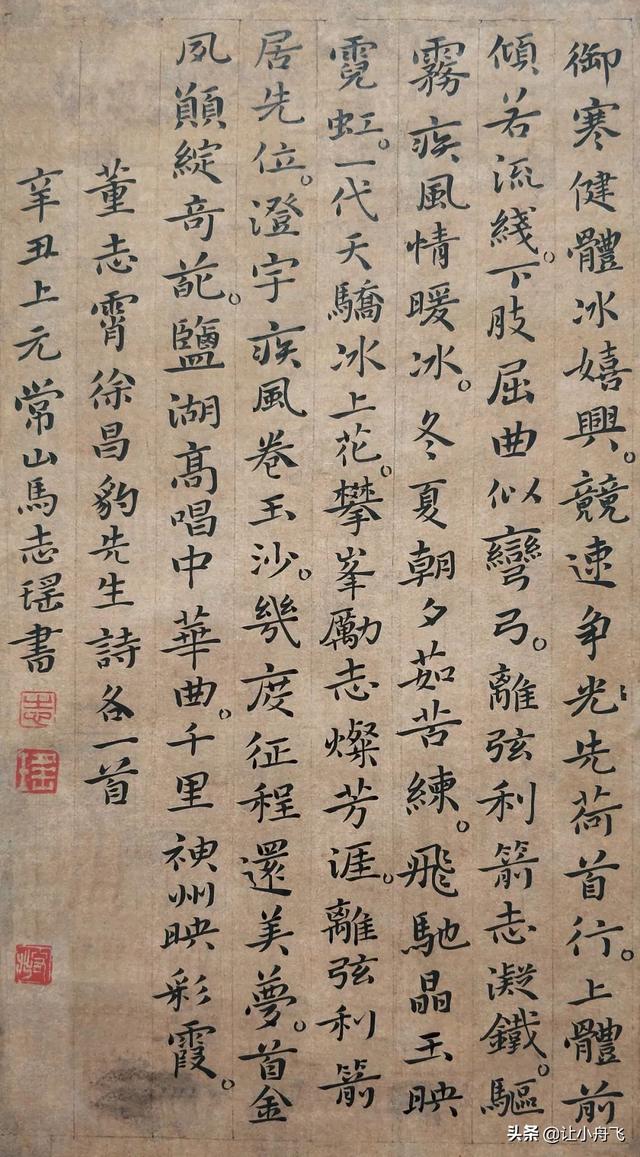 御寒健體冰嬉興。競速争光先荷首行。上體前
傾若流綫。下肢屈曲似彎弓。離弦利箭志凝鐵。驅
霧疾風情暖冰。冬夏朝夕茹苦練。飛馳晶玉映
霓虹。一代天驕冰上花。攀峯勵志燦芳涯。離弦利箭
居先位。澄宇疾風卷玉沙。幾度征程還美夢。首金
夙願綻奇葩。鹽湖高唱中華曲。千里神州映彩霞。
董志霄徐昌豹先生詩各一首
辛丑上元常山馬志瑶書
志
瑶
头条 @让小舟飞